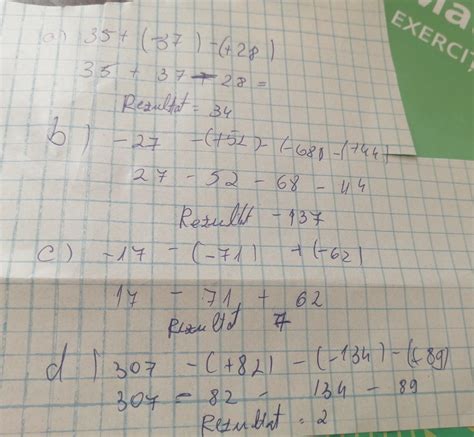 EXERCIT
a) 35 + (-37) - (+28)
35 + 37 - 28 =
Rezultat = 34
b) -27 - (+52) - (-68) - (+44)
27 - 52 - 68 - 44
Rezultat -137
c) -17 - (-71) + (-62)
17 - 71 + 62
Rezultat 7
d) 307 - (+82) - (-134) - (+89)
307 - 82 - 134 - 89
Rezultat = 2